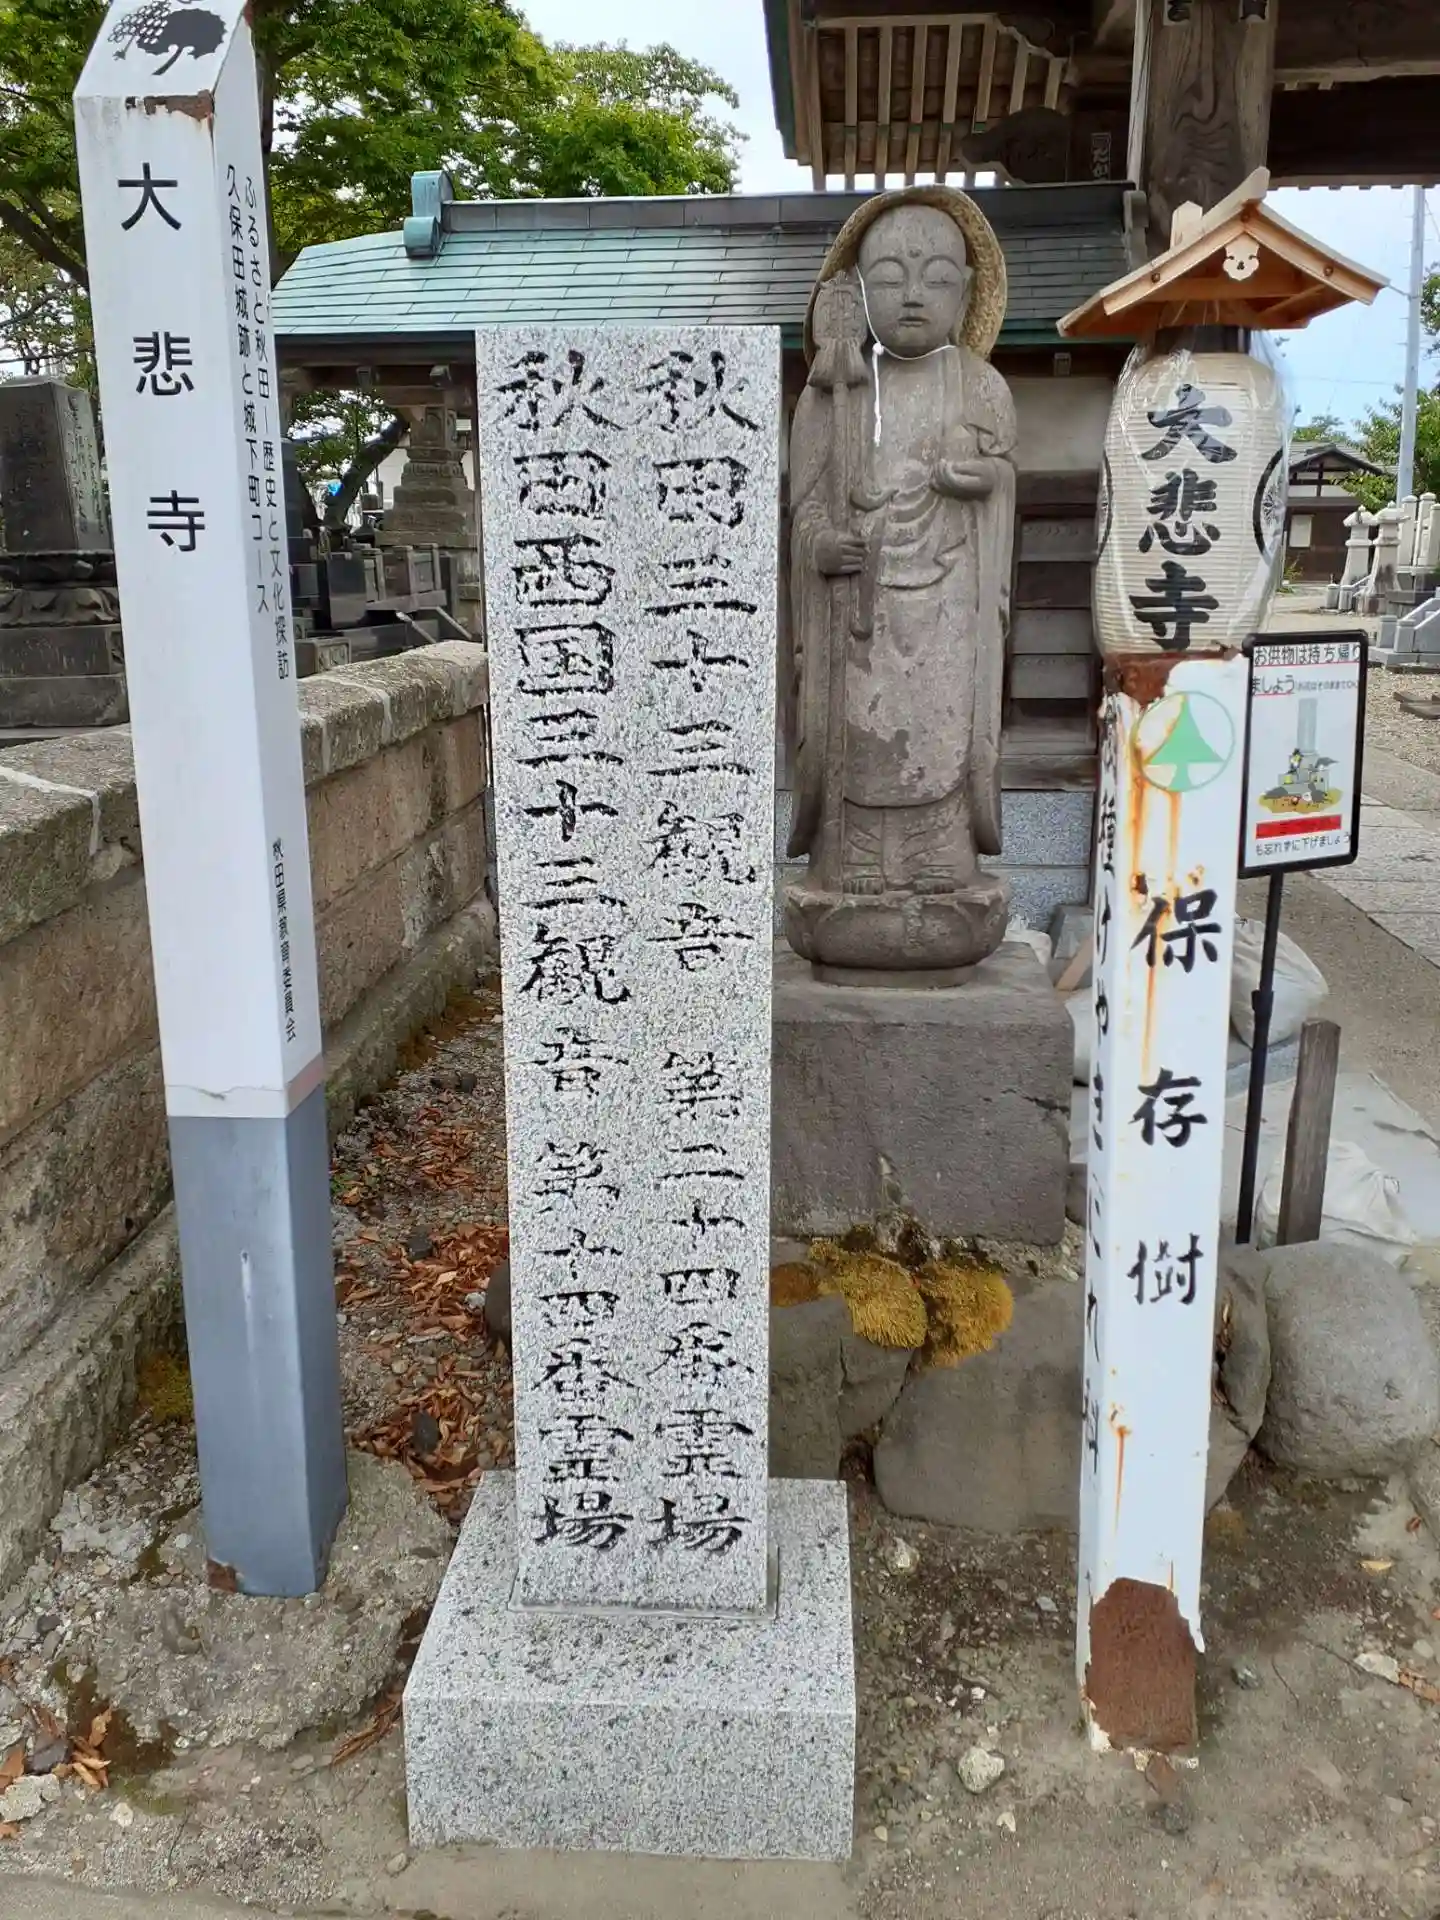 大悲寺
ふるさと秋田ー歴史と文化探訪
久保田城跡と城下町コース
秋田県教育委員会
秋田三十三観音 第二十四番霊場
秋田西国三十三観音 第十四番霊場
大悲寺
保存樹
種けやきにれ科
お供物は持ち帰り
ましょう
も忘れずに下げましょう